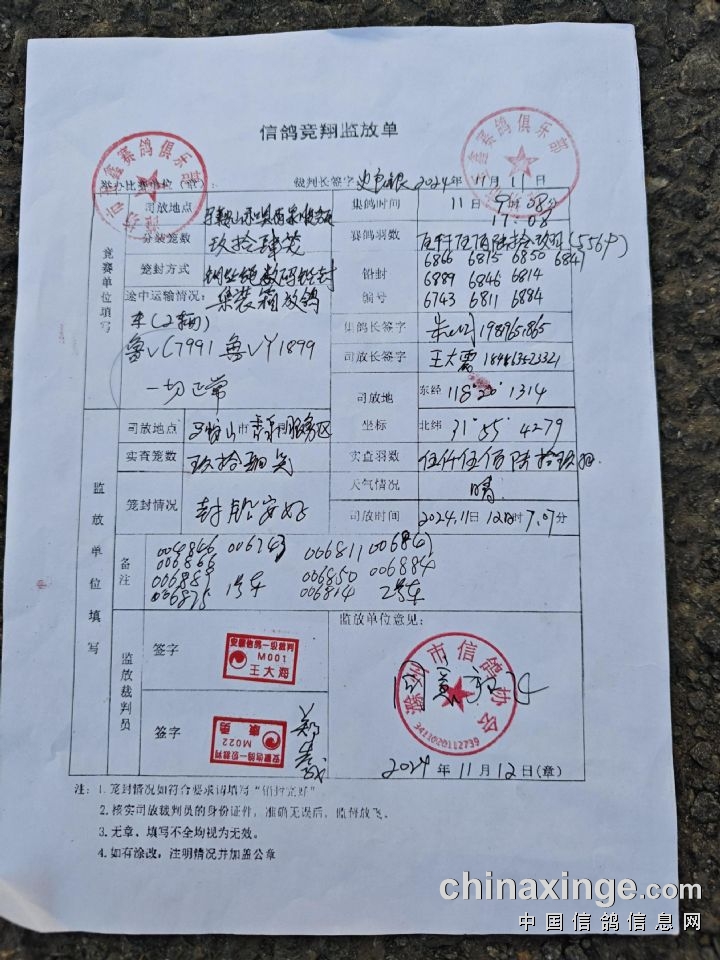 信鸽竞翔监放单
举办比赛单位（章）： 裁判长签字 2024年11月11日
竞赛单位填写
司放地点
集鸽时间 11日9时08分
11 08
分装笼数 玖拾肆笼
赛鸽羽数 伍仟伍佰陆拾玖羽(5569)
笼封方式
铅封编号 6866 6815 6850 6841
6889 6846 6814
6743 6811 6884
途中运输情况： 集装箱放鸽
车(2辆)
鲁VC7991 鲁VY1899
一切正常
集鸽长签字
司放长签字 王大震
司放地坐标 东经 118°20′1314
北纬 31°55′4279
监放单位填写
司放地点 马鞍山市 服务区
实查笼数 玖拾肆笼
实查羽数 伍仟伍佰陆拾玖羽
笼封情况 封铅安好
天气情况 晴
司放时间 2024.11月12日 7:07分
备注
004846 006743 006811 006841
006866
006889 1号车 006850 006884
006875 006814 2号车
监放裁判员
签字
安徽信鸽一级裁判
M001
王大海
签字
安徽信鸽一级裁判
M022
康勇
监放单位意见：
滁州市信鸽协会
2024年11月12日(章)
注：1.笼封情况如符合要求请填写“铅封完好”
2.核实司放裁判员的身份证件，准确无误后，监督放飞。
3.无章、填写不全均视为无效。
4.如有涂改，注明情况并加盖公章
chinaxinge.com
中国信鸽信息网